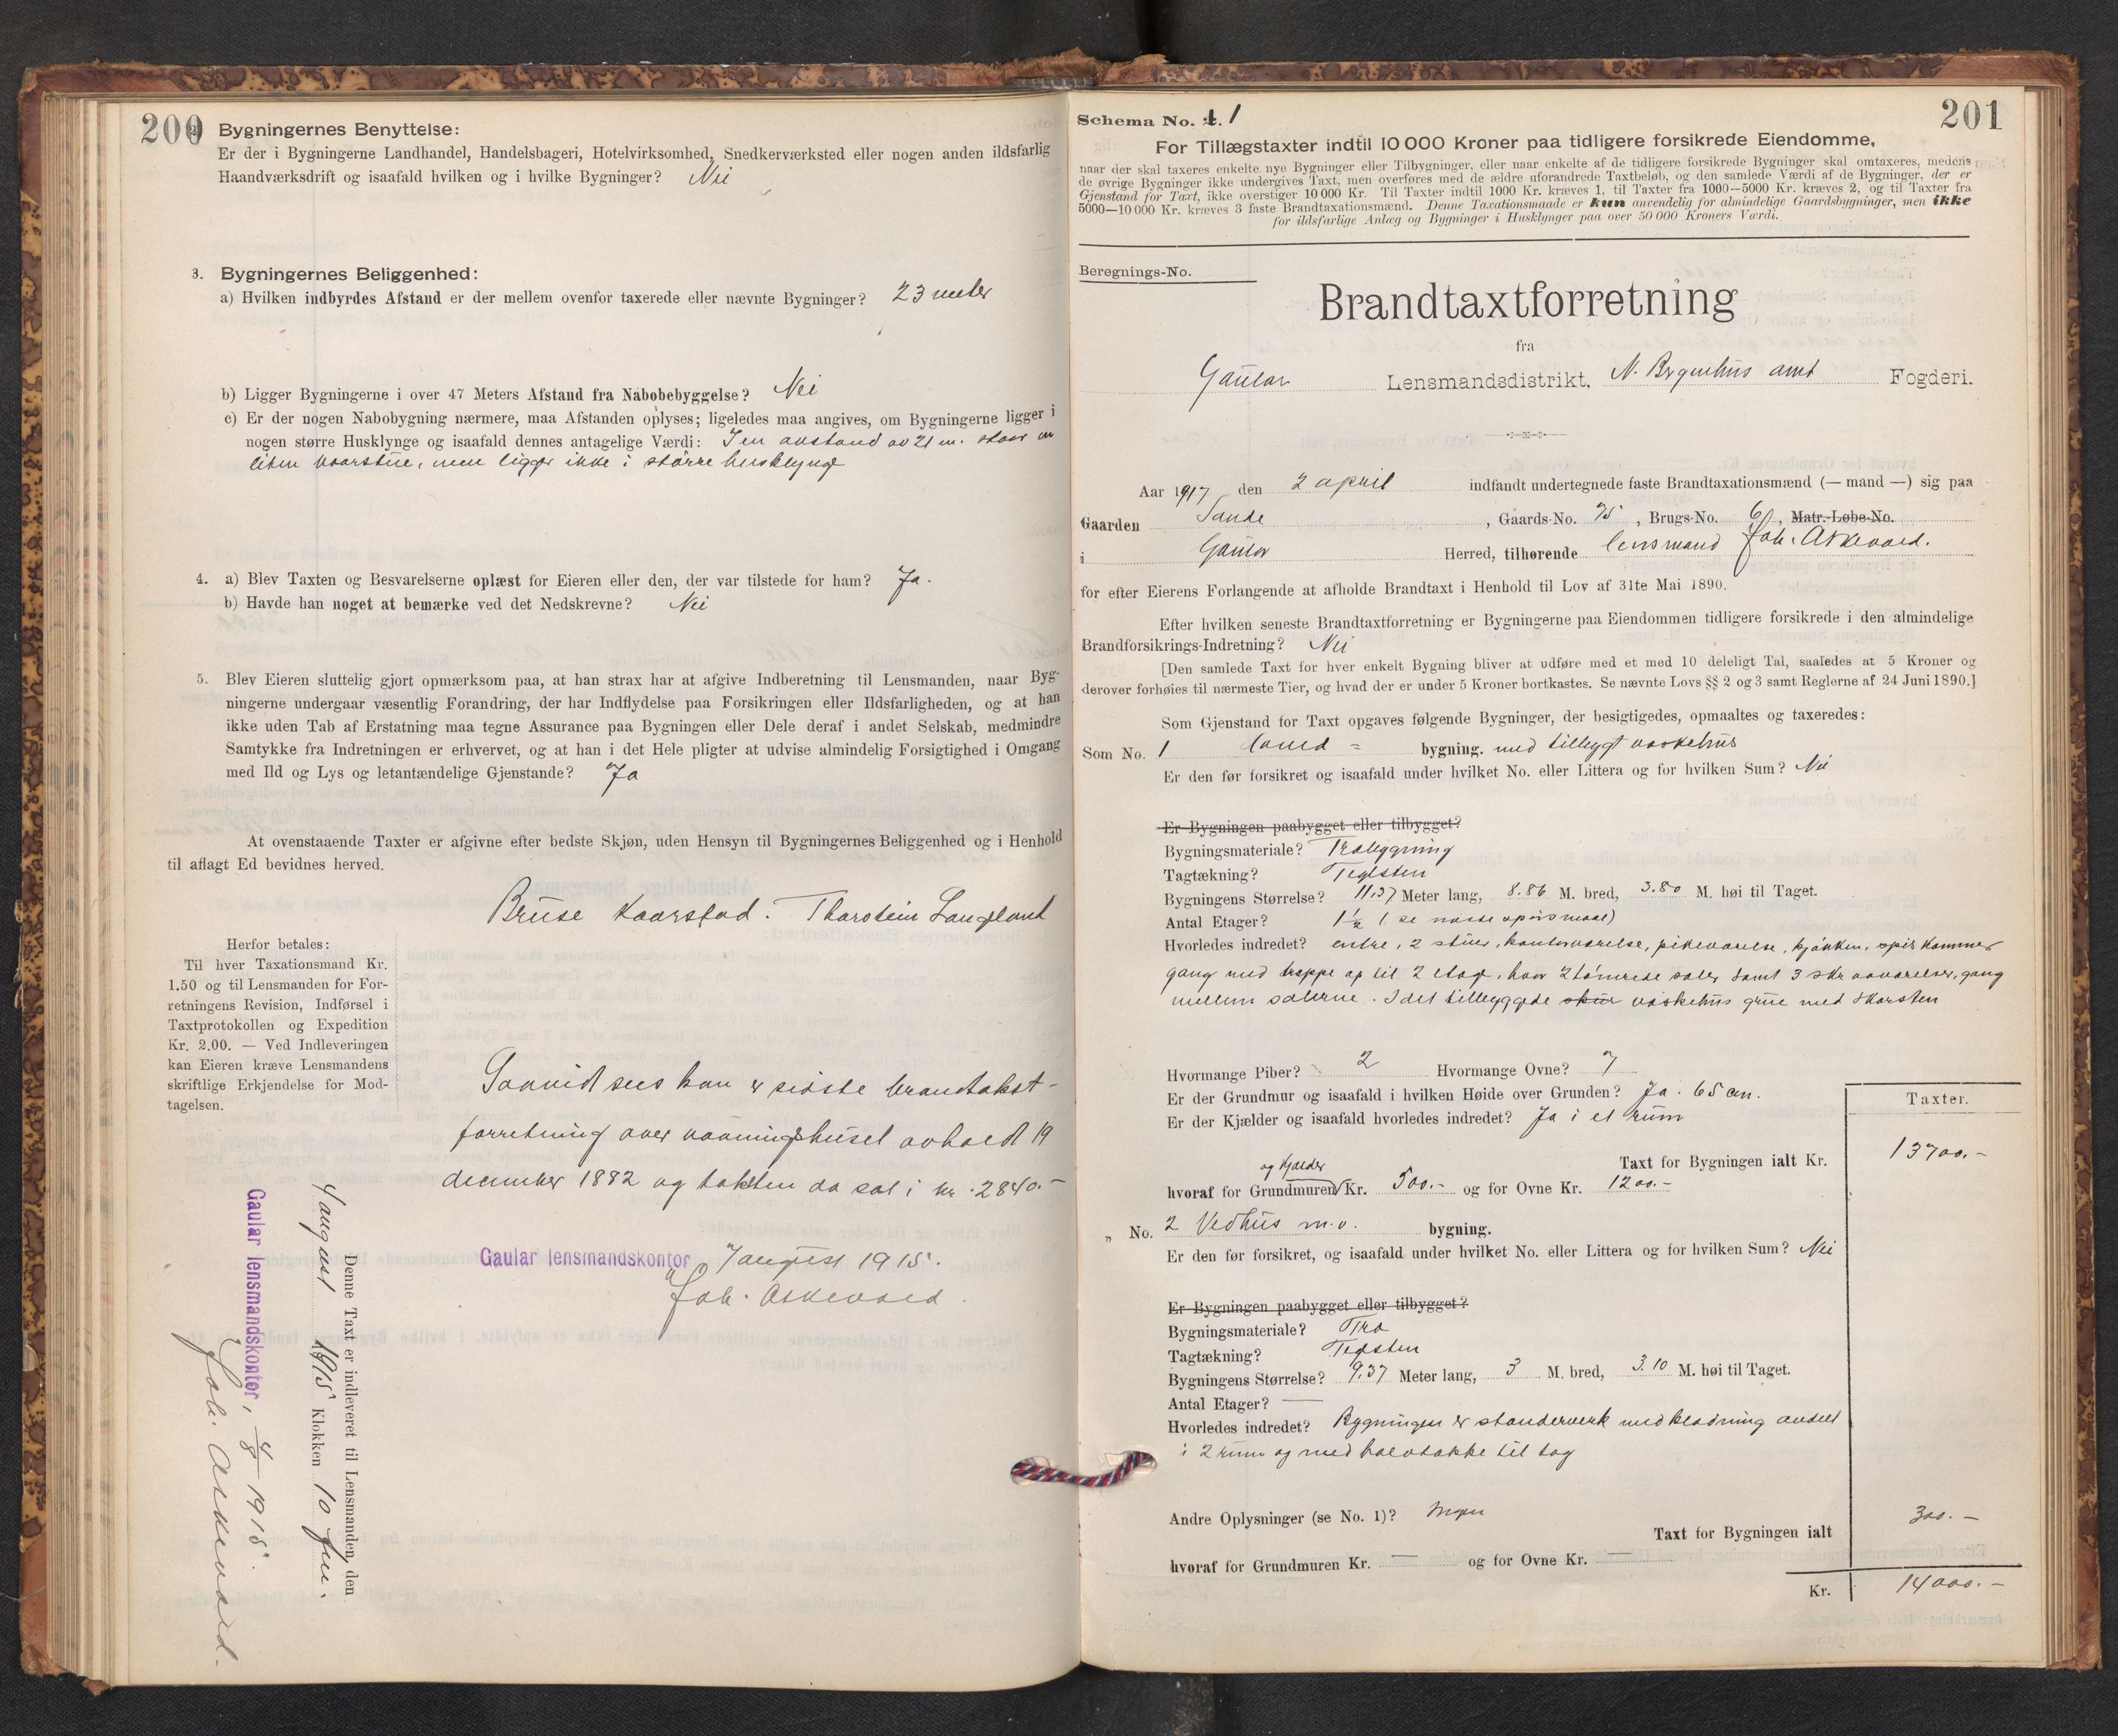 200
2. Bygningernes Benyttelse:
Er der i Bygningerne Landhandel, Handelsbageri, Hotelvirksomhed, Snedkerværksted eller nogen anden ildsfarlig
Haandværksdrift og isaafald hvilken og i hvilke Bygninger? Nei
3. Bygningernes Beliggenhed:
a) Hvilken indbyrdes Afstand er der mellem ovenfor taxerede eller nævnte Bygninger? 23 meter
b) Ligger Bygningerne i over 47 Meters Afstand fra Nabobebyggelse? Nei
c) Er der nogen Nabobygning nærmere, maa Afstanden oplyses; ligeledes maa angives, om Bygningerne ligger i
nogen større Husklynge og isaafald dennes antagelige Værdi: I en avstand av 21 m. staar en
liten vaarstue, men ligger ikke i større husklynge
4. a) Blev Taxten og Besvarelserne oplæst for Eieren eller den, der var tilstede for ham? Ja.
b) Havde han noget at bemærke ved det Nedskrevne? Nei
5. Blev Eieren sluttelig gjort opmærksom paa, at han strax har at afgive Indberetning til Lensmanden, naar Byg-
ningerne undergaar væsentlig Forandring, der har Indflydelse paa Forsikringen eller Ildsfarligheden, og at han
ikke uden Tab af Erstatning maa tegne Assurance paa Bygningen eller Dele deraf i andet Selskab, medmindre
Samtykke fra Indretningen er erhvervet, og at han i det Hele pligter at udvise almindelig Forsigtighed i Omgang
med Ild og Lys og letantændelige Gjenstande? Ja
At ovenstaaende Taxter er afgivne efter bedste Skjøn, uden Hensyn til Bygningernes Beliggenhed og i Henhold
til aflagt Ed bevidnes herved.
Bruse Kaarstad. Thorstein Langeland
Herfor betales:
Til hver Taxationsmand Kr.
1.50 og til Lensmanden for For-
retningens Revision, Indførsel i
Taxtprotokollen og Expedition
Kr. 2.00. — Ved Indleveringen
kan Eieren kræve Lensmandens
skriftlige Erkjendelse for Mod-
tagelsen.
Saavidt sees kan er sidste brandtakst-
forretning over vaaningshuset avholdt 19
december 1882 og taksten da sat i kr. 2840.-
Gaular lensmandskontor 7 august 1915.
Joh. Askevold.
Denne Taxt er indleveret til Lensmanden, den
4 august 1915 Klokken 10 fm.
Gaular lensmandskontor, 4/8 1915.
Joh. Askevold.
201
Schema No. 4. 1
For Tillægstaxter indtil 10 000 Kroner paa tidligere forsikrede Eiendomme,
naar der skal taxeres enkelte nye Bygninger eller Tilbygninger, eller naar enkelte af de tidligere forsikrede Bygninger skal omtaxeres, medens
de øvrige Bygninger ikke undergives Taxt, men overføres med de ældre uforandrede Taxtbeløb, og den samlede Værdi af de Bygninger, der er
Gjenstand for Taxt, ikke overstiger 10 000 Kr. Til Taxter indtil 1000 Kr. kræves 1, til Taxter fra 1000—5000 Kr. kræves 2, og til Taxter fra
5000—10 000 Kr. kræves 3 faste Brandtaxationsmænd. Denne Taxationsmaade er kun anvendelig for almindelige Gaardsbygninger, men ikke
for ildsfarlige Anlæg og Bygninger i Husklynger paa over 50 000 Kroners Værdi.
Beregnings-No.
Brandtaxtforretning
fra
Gaular Lensmandsdistrikt, N. Bergenhus amt Fogderi.
Aar 1917 den 2 april indfandt undertegnede faste Brandtaxationsmænd (— mand —) sig paa
Gaarden Sande, Gaards-No. 75, Brugs-No. 6, Matr.-Løbe-No.
i Gaular Herred, tilhørende lensmand Joh. Askevold.
for efter Eierens Forlangende at afholde Brandtaxt i Henhold til Lov af 31te Mai 1890.
Efter hvilken seneste Brandtaxtforretning er Bygningerne paa Eiendommen tidligere forsikrede i den almindelige
Brandforsikrings-Indretning? Nei
[Den samlede Taxt for hver enkelt Bygning bliver at udføre med et med 10 deleligt Tal, saaledes at 5 Kroner og
derover forhøies til nærmeste Tier, og hvad der er under 5 Kroner bortkastes. Se nævnte Lovs §§ 2 og 3 samt Reglerne af 24 Juni 1890.]
Som Gjenstand for Taxt opgaves følgende Bygninger, der besigtigedes, opmaaltes og taxeredes:
Som No. 1 bygning. med tilbygt vaskehus
Er den før forsikret og isaafald under hvilket No. eller Littera og for hvilken Sum? Nei
Er Bygningen paabygget eller tilbygget?
Bygningsmateriale? Træbygning
Tagtækning? Teglsten
Bygningens Størrelse? 11.37 Meter lang, 8.86 M. bred, 3.80 M. høi til Taget.
Antal Etager? 1 1/2 (se næste spørsmaal)
Hvorledes indredet? entre, 2 stuer, kontorværelse, pikeværelse, kjøkken, spiskammer
gang med trappe op til 2 etage, hvor 2 tømrede saler samt 3 skraaværelser, gang
mellem salerne. I det tilbyggede skur vaskehus grue med skorsten
Hvormange Piber? 2 Hvormange Ovne? 7
Er der Grundmur og isaafald i hvilken Høide over Grunden? Ja. 65 cm.
Er der Kjælder og isaafald hvorledes indredet? Ja i et rum
Taxter.
Taxt for Bygningen ialt Kr. 13700.-
og kjælder
hvoraf for Grundmuren Kr. 500.- og for Ovne Kr. 1200.-
„ No. 2 Vedhus m.v. bygning.
Er den før forsikret, og isaafald under hvilket No. eller Littera og for hvilken Sum? Nei
Er Bygningen paabygget eller tilbygget?
Bygningsmateriale? Træ
Tagtækning? Teglsten
Bygningens Størrelse? 9.37 Meter lang, 3 M. bred, 3.10 M. høi til Taget.
Antal Etager? —
Hvorledes indredet? Bygningen er standerverk med klædning avdelt
i 2 rum og med halvtække til tag
Andre Oplysninger (se No. 1)? Ingen
Taxt for Bygningen ialt 300.-
hvoraf for Grundmuren Kr. — og for Ovne Kr. —
Kr. 14000.-